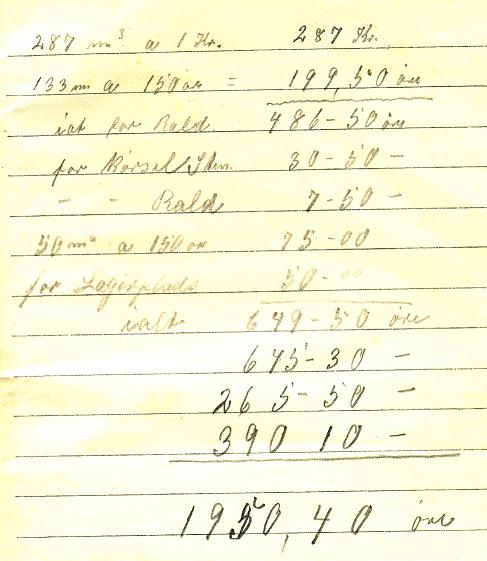 287 m³ a 1 Kr. 287 Kr.
133 m a 150 ör = 199,50 öre
iat for Rald. 486-50 öre
for Körsel Sten. 30-50 -
- - Rald 7-50 -
50 m³ a 150 ör 75-00
for Lagerplads 50-00
ialt 649-50 öre
645-30 -
265-50 -
390 10 -
1950,40 öre